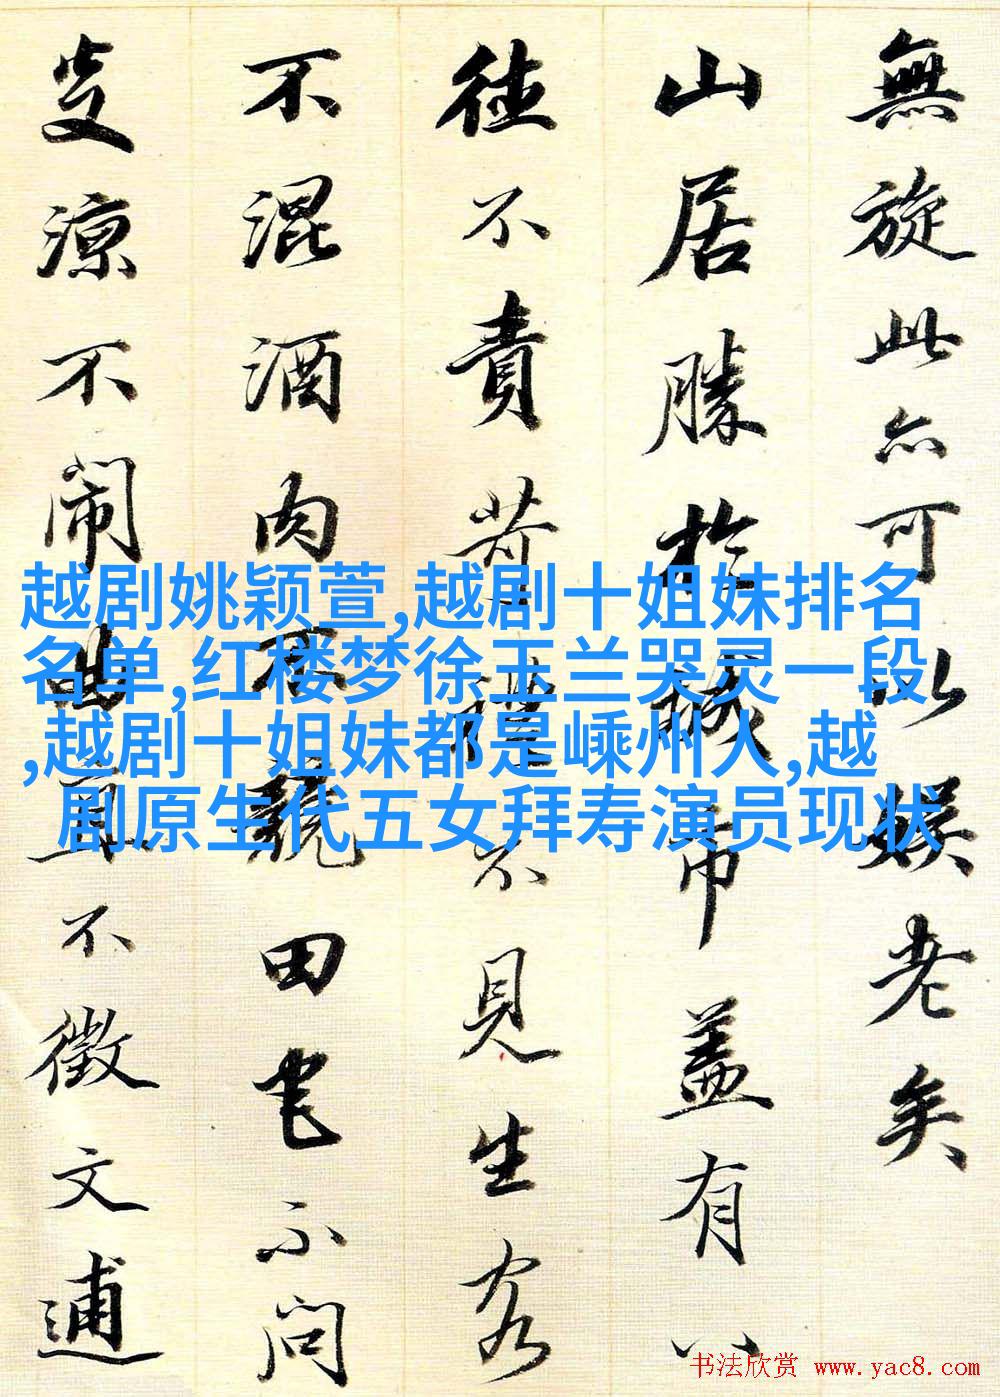 無旋此亦可以娱老矣
山居勝於城市蓋有八
徃不責苛禮不見生客
不混酒肉不競田宅不問
炎涼不闹曲直不徵文逋
越剧姚颖萱,越剧十姐妹排名
名单,红楼梦徐玉兰哭灵一段
,越剧十姐妹都是嵊州人,越
剧原生代五女拜寿演员现状
书法欣赏 www.yac8.com